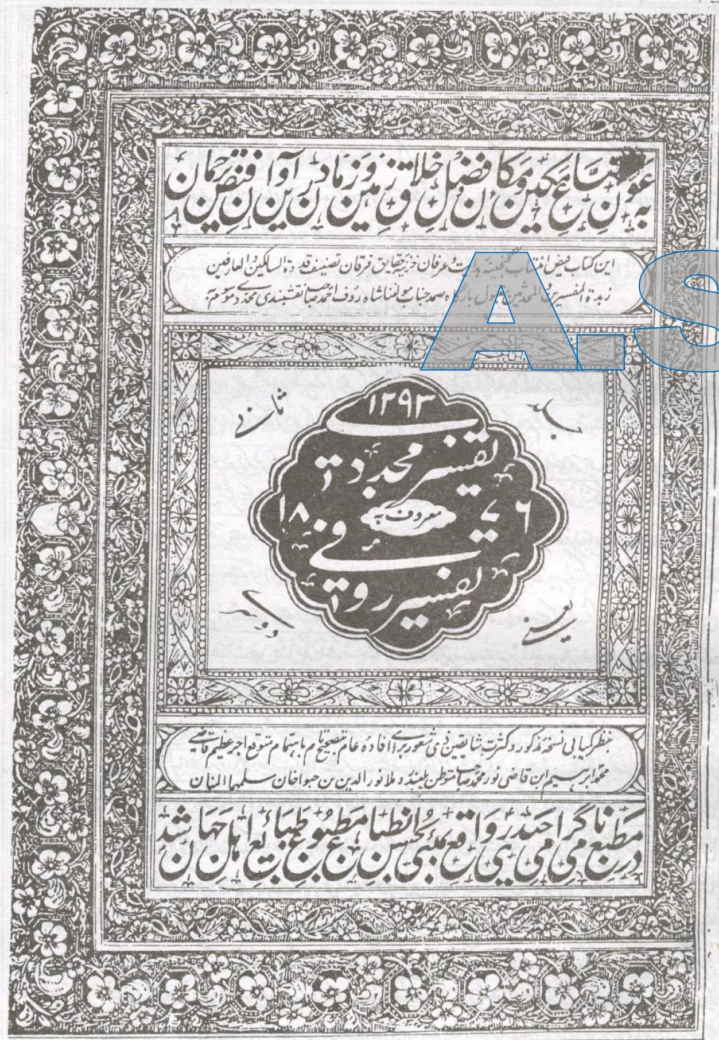 بہ عون صناع مکین و مکان فضل خلاق زمین و زمان درین آوان فیض
این کتاب فیض انتساب گنجینہ ہدایت و عرفان خزینہ حقایق فرقان تصنیف قدوة السالکین العارفین
زبدة المفسرین المحدثین مقبول بارگاہ صمد جناب مولٰنا شاہ رؤف احمد صاحب نقشبندی مجددی مرحوم
A.S
جلد ثانی
۱۲۹۳
تفسیر مجددی
۱۸ معروف بہ ۷۶
تفسیر رؤفی
یعنے
بنظر کمیابی نسخہ مذکور و کثرت شایقین ذی شعور برای افادہ عام بتصحیح تام باہتمام متوقع اجر عظیم قاضی
محمد ابراہیم ابن قاضی نور محمد صاحب متوطن پلبندر و ملا نور الدین بن جیواخان سلمہما المنان
در مطبع نامی گرامی حیدری واقع بمبئی بحسن انطباع مطبوع طبایع اہل جہان شد